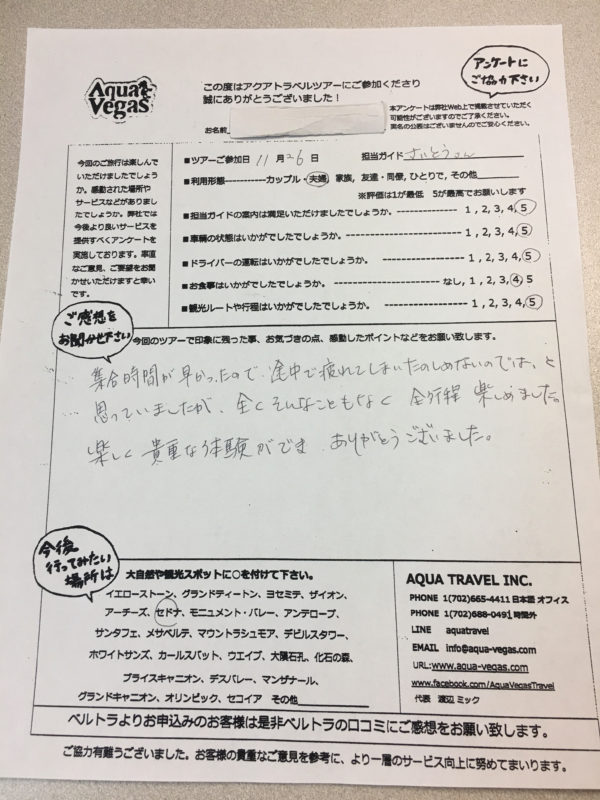 Aqua Vegas
アンケートに
ご協力下さい
この度はアクアトラベルツアーにご参加くださり
誠にありがとうございました！
本アンケートは弊社Web上で掲載させていただく
可能性がございますのでご了承ください。
実名の公表はございませんのでご安心ください。
お名前
今回のご旅行は楽しんで
いただけましたでしょう
か。感動された場所や
サービスなどがありまし
たでしょうか。弊社では
今後より良いサービスを
提供すべくアンケートを
実施しております。率直
なご意見、ご要望をお聞
かせいただけますと幸い
です。
■ツアーご参加日 11 月 26 日 担当ガイド さいとうさん
■利用形態-----------カップル・夫婦, 家族, 友達・同僚, ひとりで, その他
※評価は1が最低 5が最高でお願いします
■担当ガイドの案内は満足いただけましたでしょうか。-------------- 1, 2, 3, 4, 5
■車輌の状態はいかがでしたでしょうか。-------------------------- 1, 2, 3, 4, 5
■ドライバーの運転はいかがでしたでしょうか。 ------------------- 1, 2, 3, 4, 5
■お食事はいかがでしたでしょうか。-------------------------- なし, 1, 2, 3, 4, 5
■観光ルートや行程はいかがでしたでしょうか。 ------------------- 1, 2, 3, 4, 5
ご感想を
お聞かせ下さい
今回のツアーで印象に残った事、お気づきの点、感動したポイントなどをお願い致します。
集合時間が早かったので、途中で疲れてしまいたのしめないのでは、と
思っていましたが、全くそんなこともなく 全行程 楽しめました。
楽しく 貴重な体験ができ ありがとうございました。
今後
行ってみたい
場所は
大自然や観光スポットに○を付けて下さい。
イエローストーン、グランドティートン、ヨセミテ、ザイオン、
アーチーズ、セドナ、モニュメント・バレー、アンテロープ、
サンタフェ、メサベルデ、マウントラシュモア、デビルスタワー、
ホワイトサンズ、カールスバット、ウエイブ、大隕石孔、化石の森、
ブライスキャニオン、デスバレー、マンザナール、
グランドキャニオン、オリンピック、セコイア その他
AQUA TRAVEL INC.
PHONE 1(702)665-4411 日本語 オフィス
PHONE 1(702)688-0491 時間外
LINE aquatravel
EMAIL info@aqua-vegas.com
URL:www.aqua-vegas.com
www.facebook.com/AquaVegasTravel
代表 渡辺 ミック
ベルトラよりお申込みのお客様は是非ベルトラの口コミにご感想をお願い致します。
ご協力有難うございました。お客様の貴重なご意見を参考に、より一層のサービス向上に努めてまいります。